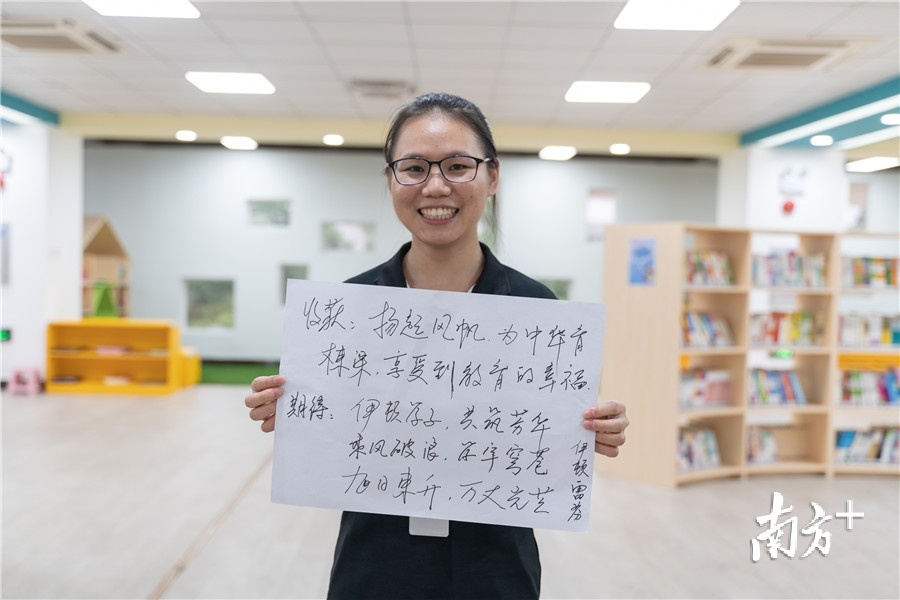 收获：扬起风帆，为中华育
栋梁，享受到教育的幸福。
期待：伊顿学子，共筑芳华
乘风破浪，
旭日东升，万丈光芒
伊顿雷芬
南方+